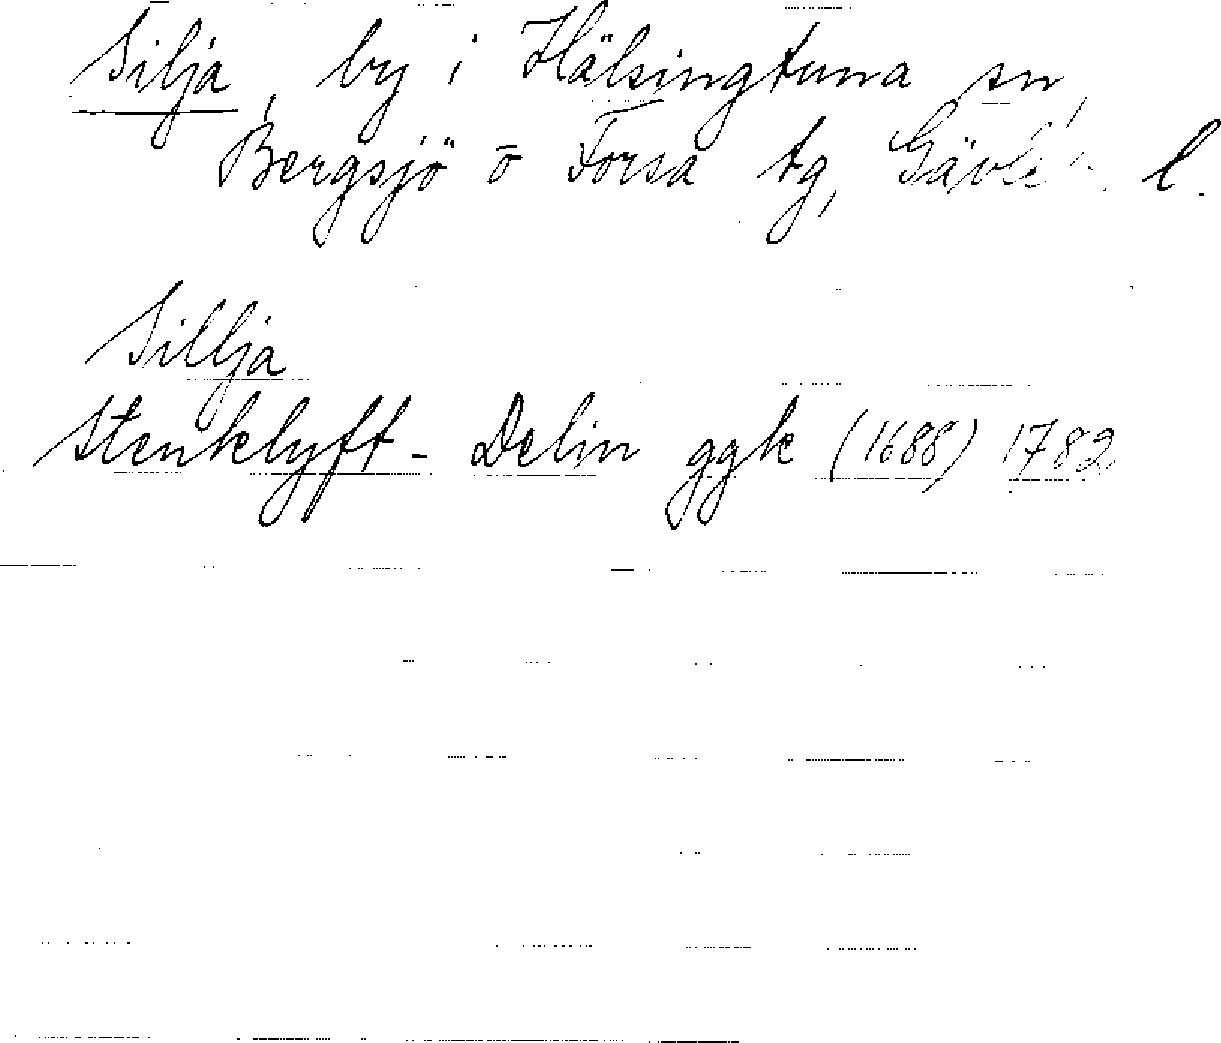 Silja, by i Hälsingtuna sn,
Bergsjö o Forsa tg, Gävle l.
Sillja
Stenklyft - Delin ggk (1688) 1782